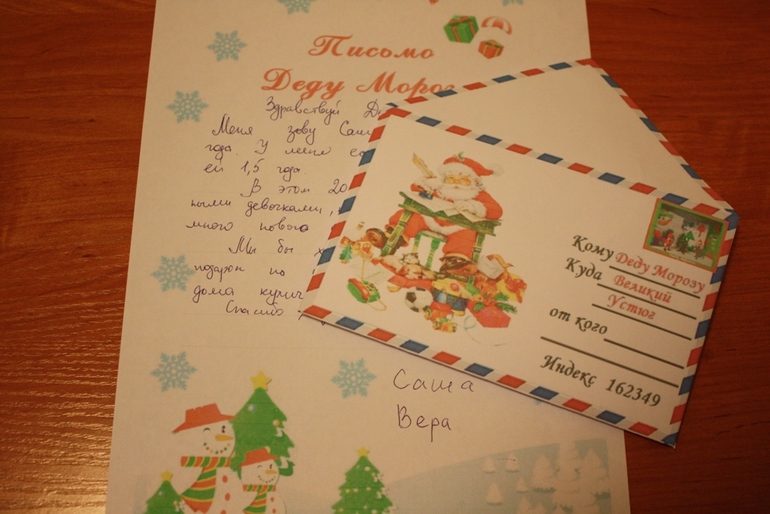 Письмо
Деду Мороз
Здравствуй Д
Меня зову Саш
года. У меня ес
ей 1,5 года.
В этом 20
ными девочками,
много нового
Мы бы х
подарок по
дома
Спасибо
Саша
Вера
Кому Деду Морозу
Куда Великий
Устюг
от кого
Индекс 162349